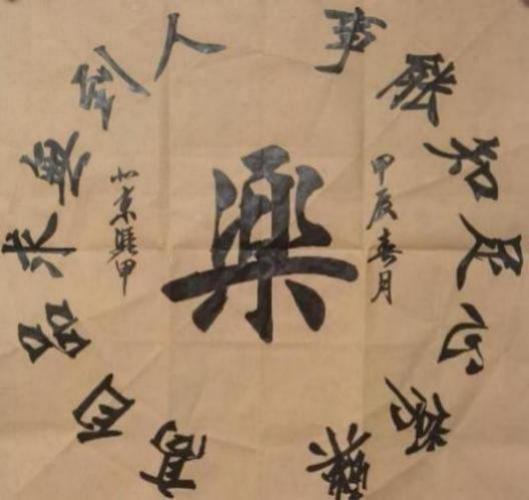 樂
事能知足心常樂
人到無求品自高
甲辰春月
北京甲